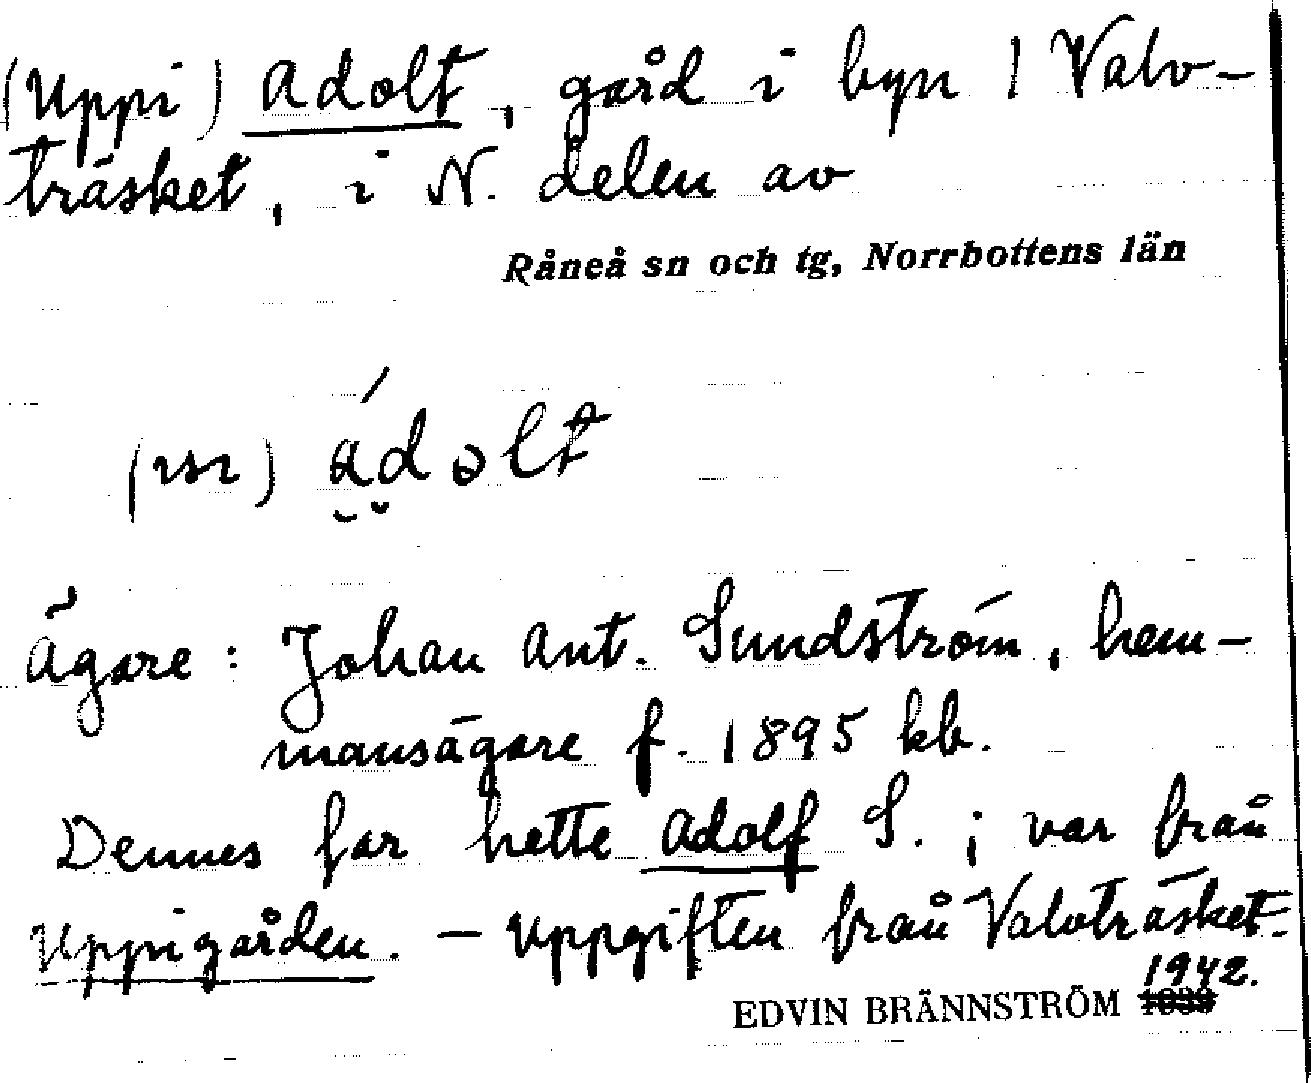 (Uppi) Adolt, gård i byn / Valv-
träsket, i N. delen av
Råneå sn och tg, Norrbottens län
ádolt
Ägare: Johan Ant. Sundström, hem-
mansägare f. 1895 kb.
Dennes far hette Adolf S.; var från
Uppigården. — Uppgiften från Valvträsket.
1942.
EDVIN BRÄNNSTRÖM